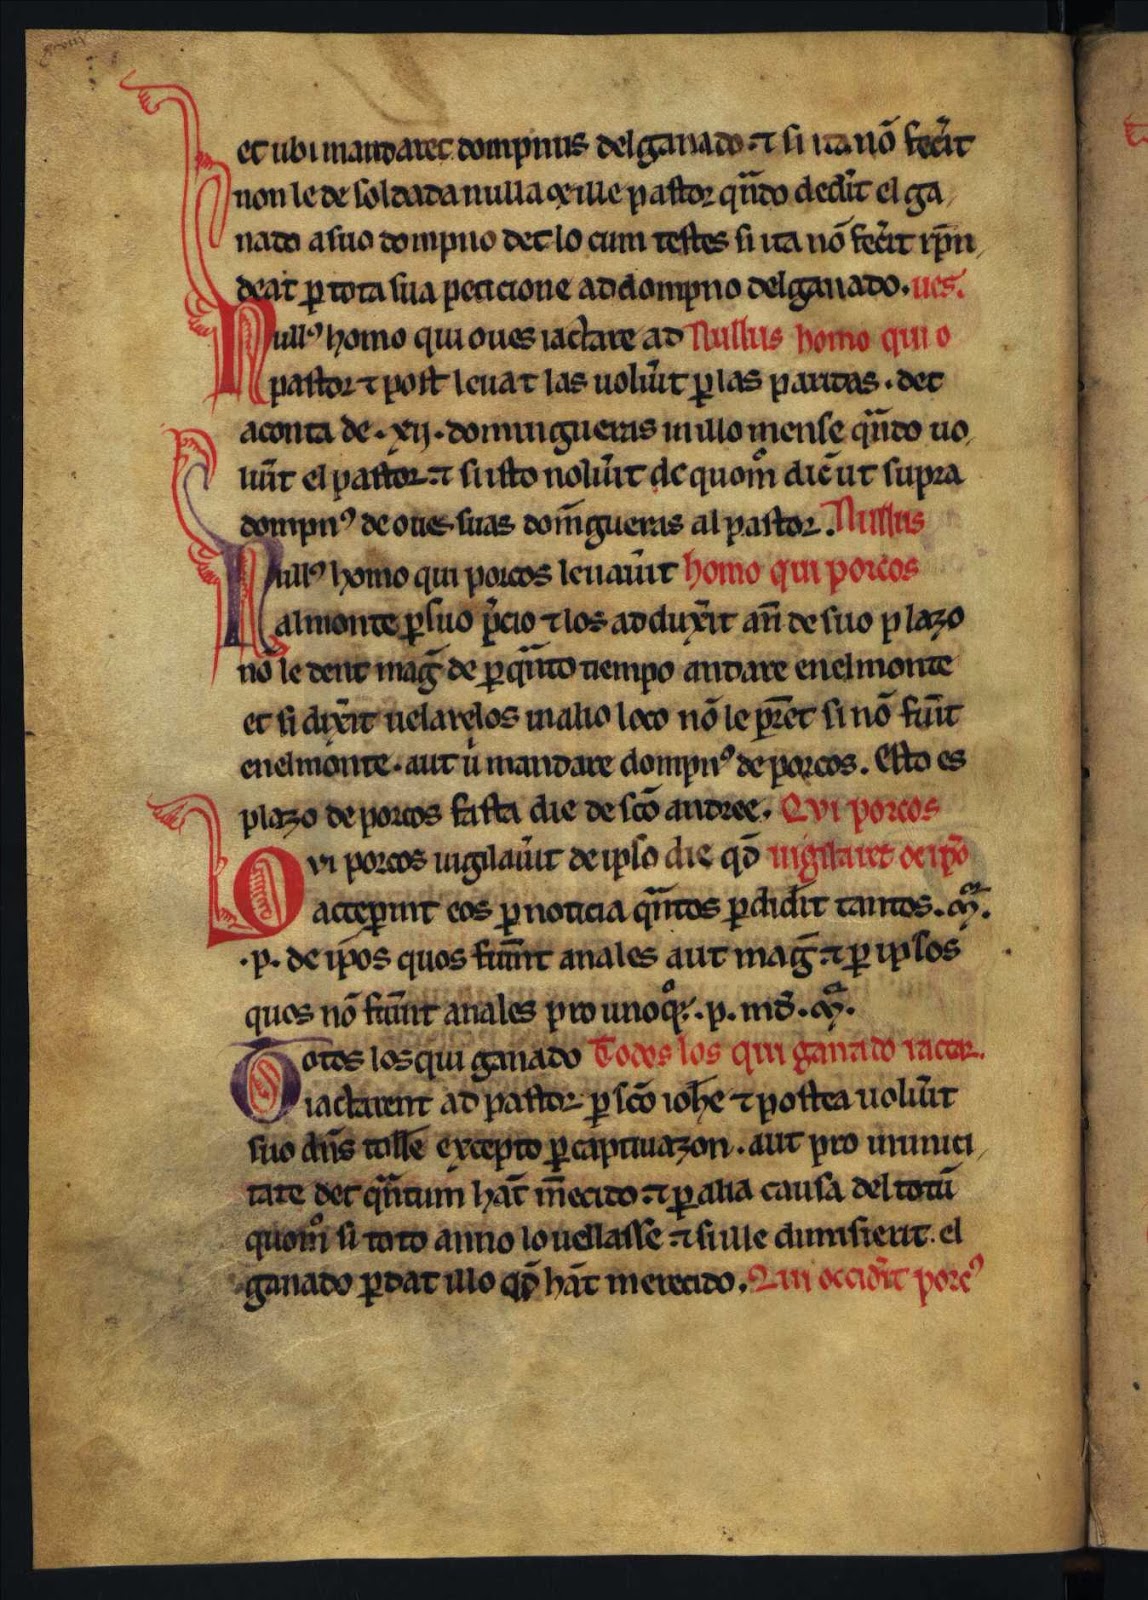 et ubi mandaret dompnus del ganado. ⁊ si ita nō fec̄it
non le de soldada nulla ⁊ ille pastor qn̄do ded̄it el ga
nado a suo dompno det lo cum testes si ita nō fec̄it rp̄n
deat ꝑ tota sua peticione ad dompno del ganado. ues.
Nullꝰ homo qui oues iactare ad Nullus homo qui o
pastor ⁊ post leuat las uolūit ꝑ las paridas. det
a conta de. xij. domingueras in illo mense qn̄do uo
lūit el pastor. ⁊ si isto nolūit de quom̊ dic̄ ut supra
dompnꝰ de oues suas dom̄gueras al pastor. Nullus
Nullꝰ homo qui porcos leuaūit homo qui porcos
al monte ꝑ suo p̄cio ⁊ los addux̄it an̄ de suo plazo
nō le dent maḡ de ꝑ qn̄to tiempo andare en el monte
et si dix̄it uelarelos in alio loco nō le p̄ret si nō fūit
en el monte. aut ū mandare dompnꝰ de porcos. Esto es
plazo de porcos fasta die de sc̄o andree. Qvi porcos
Qvi porcos uigilaūit de ipso die qd̄ uigilaret de ip̄o
acceperint eos ꝑ noticia qn̄tos ꝑdid̄it tantos. mͬ.
.p. de ip̄os quos fūint anales aut maḡ ⁊ ꝑ ipsos
quos nō fūint anales pro unoqͦqͣ. p. md̄. mͬ.
Totos los qui ganado Todos los qui ganado iactar.
iactarent ad pastor ꝑ sc̄o ioh̄e ⁊ postea uolūit
suo dn̄s toll̄e excepto ꝑ captiuazon. aut pro inimici
tate det qn̄tum hāt m̄ecido ⁊ ꝑ alia causa del totū
quom̊ si toto anno lo uellasse ⁊ si ille dimisierit el
ganado ꝑdat illo qd̄ hāt merecido. Qui occid̄it porcꝰ